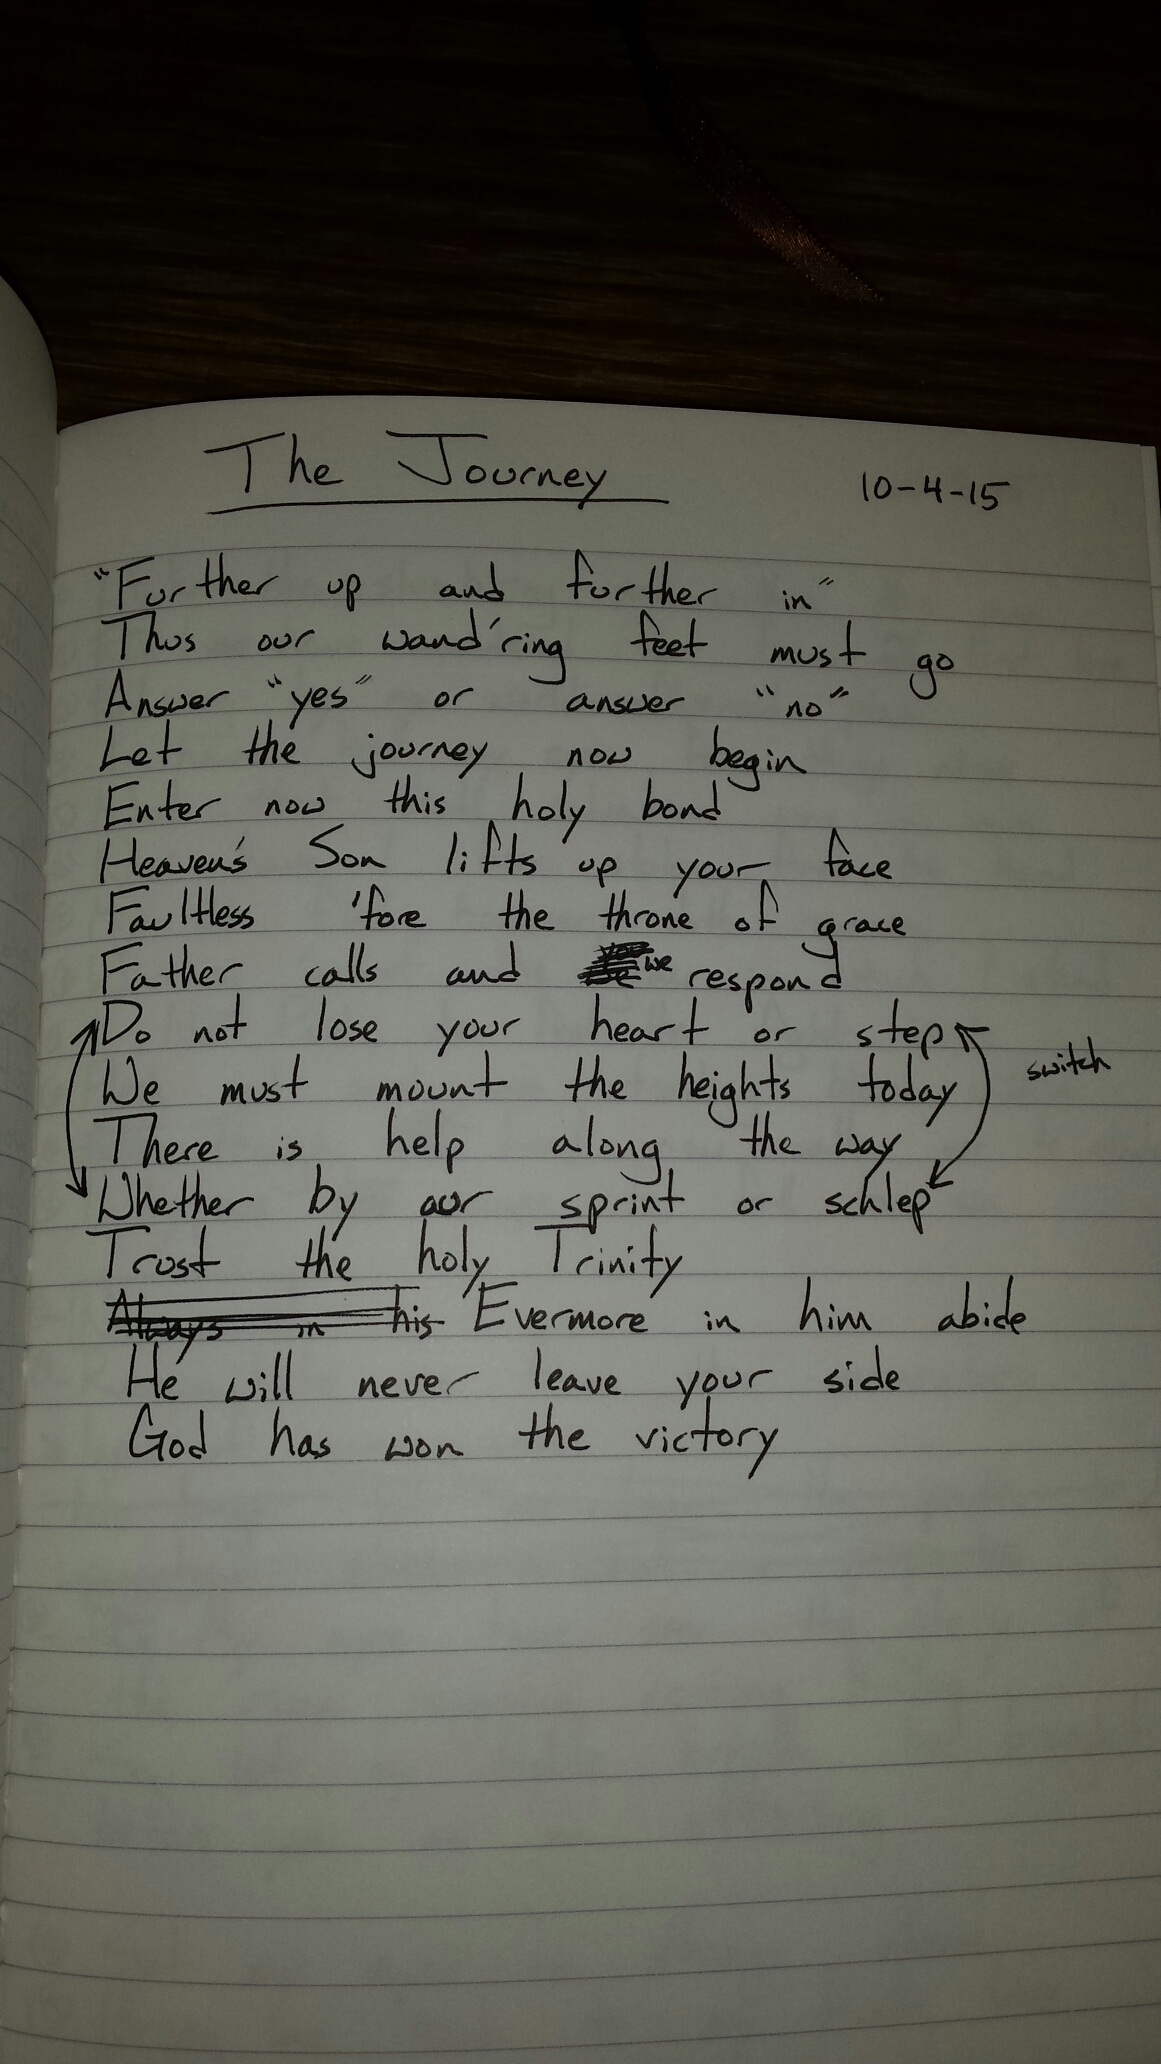 The Journey 10-4-15
"Further up and further in"
Thus our wand'ring feet must go
Answer "yes" or answer "no"
Let the journey now begin
Enter now this holy bond
Heaven's Son lifts up your face
Faultless 'fore the throne of grace
Father calls and we respond
Do not lose your heart or step
switch
We must mount the heights today
There is help along the way
Whether by our sprint or schlep
Trust the holy Trinity
Always in his Evermore in him abide
He will never leave your side
God has won the victory